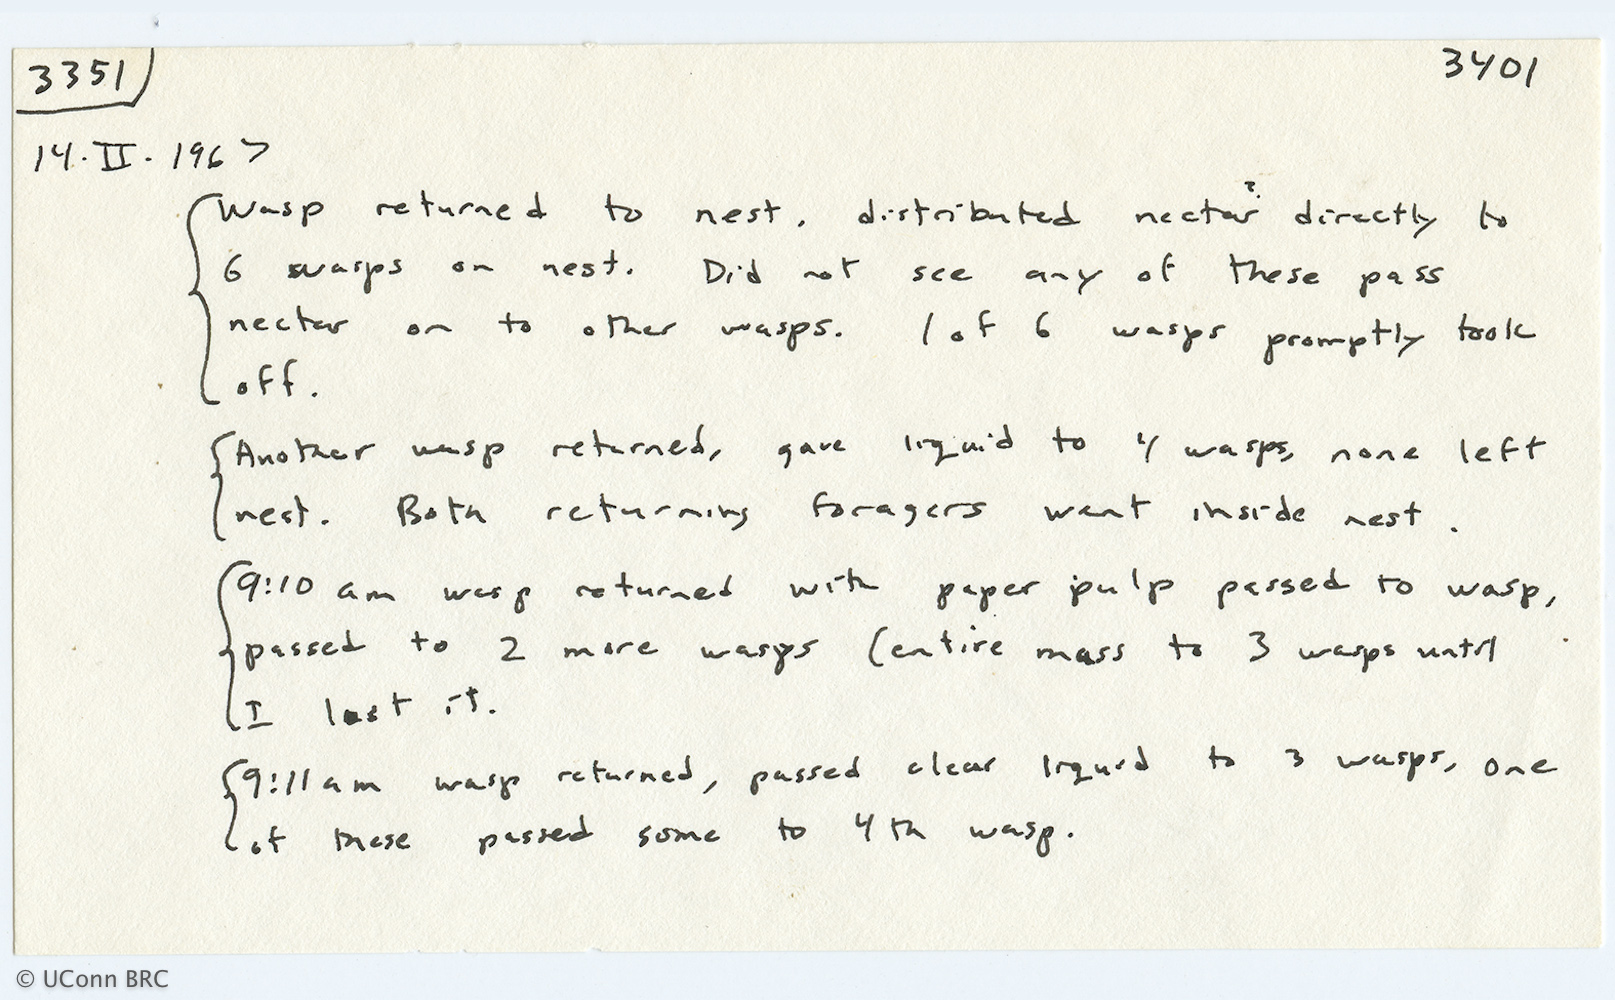 3351
3401
14.II.1967
Wasp returned to nest, distributed nectar? directly to
6 wasps on nest. Did not see any of these pass
nectar on to other wasps. 1 of 6 wasps promptly took
off.
Another wasp returned, gave liquid to 4 wasps, none left
nest. Both returning foragers went inside nest.
9:10 am wasp returned with paper pulp passed to wasp,
passed to 2 more wasps (entire mass to 3 wasps until
I lost it.
9:11 am wasp returned, passed clear liquid to 3 wasps, one
of these passed some to 4th wasp.
© UConn BRC